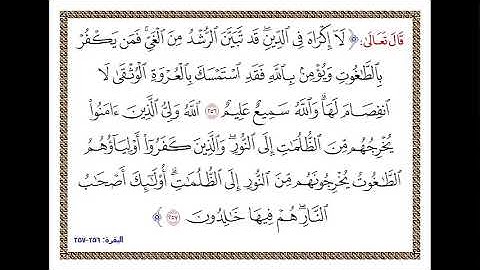 قَالَ تَعَالَىٰ: ﴿ لَآ إِكۡرَاهَ فِي ٱلدِّينِۖ قَد تَّبَيَّنَ ٱلرُّشۡدُ مِنَ ٱلۡغَيِّۚ فَمَن يَكۡفُرۡ
بِٱلطَّٰغُوتِ وَيُؤۡمِنۢ بِٱللَّهِ فَقَدِ ٱسۡتَمۡسَكَ بِٱلۡعُرۡوَةِ ٱلۡوُثۡقَىٰ لَا
ٱنفِصَامَ لَهَاۗ وَٱللَّهُ سَمِيعٌ عَلِيمٌ ٢٥٦ ٱللَّهُ وَلِيُّ ٱلَّذِينَ ءَامَنُواْ
يُخۡرِجُهُم مِّنَ ٱلظُّلُمَٰتِ إِلَى ٱلنُّورِۖ وَٱلَّذِينَ كَفَرُوٓاْ أَوۡلِيَآؤُهُمُ
ٱلطَّٰغُوتُ يُخۡرِجُونَهُم مِّنَ ٱلنُّورِ إِلَى ٱلظُّلُمَٰتِۗ أُوْلَٰٓئِكَ أَصۡحَٰبُ
ٱلنَّارِۖ هُمۡ فِيهَا خَٰلِدُونَ ٢٥٧ ﴾
البقرة: ٢٥٦-٢٥٧